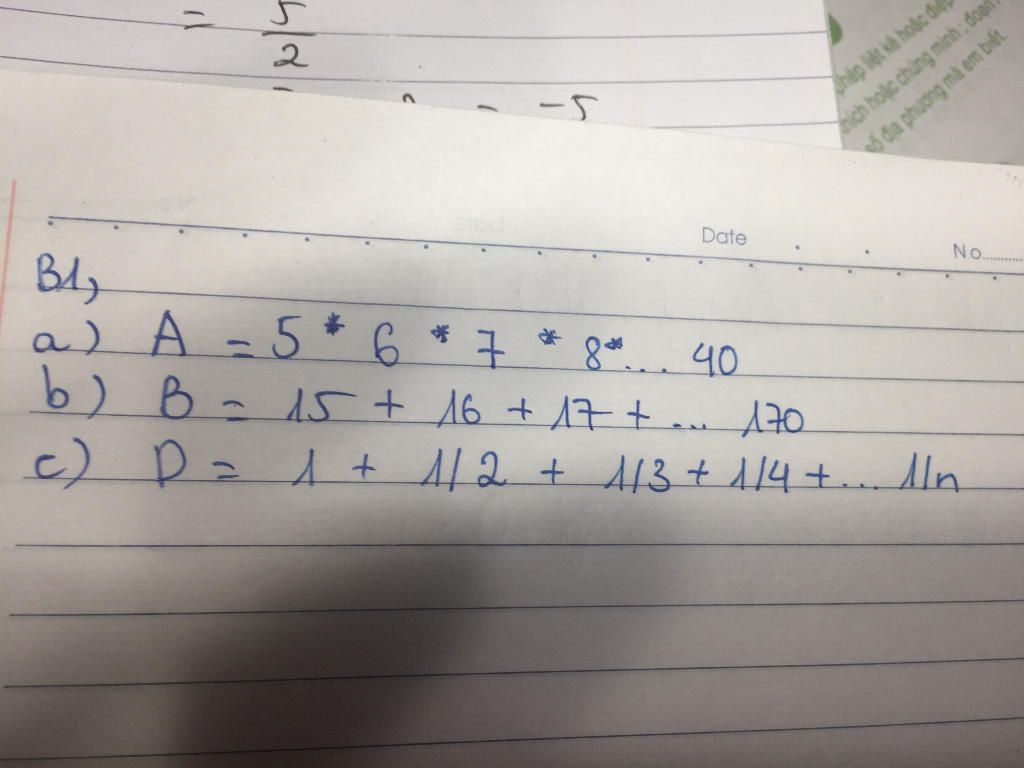 = 5
2
= -5
phép liệt kê hoặc điệp
thích hoặc chứng minh ; đoạn
số địa phương mà em biết.
Date
No..........
B1,
a) A = 5 * 6 * 7 * 8 * ... 40
b) B = 15 + 16 + 17 + ... 170
c) D = 1 + 1/2 + 1/3 + 1/4 + ... 1/n